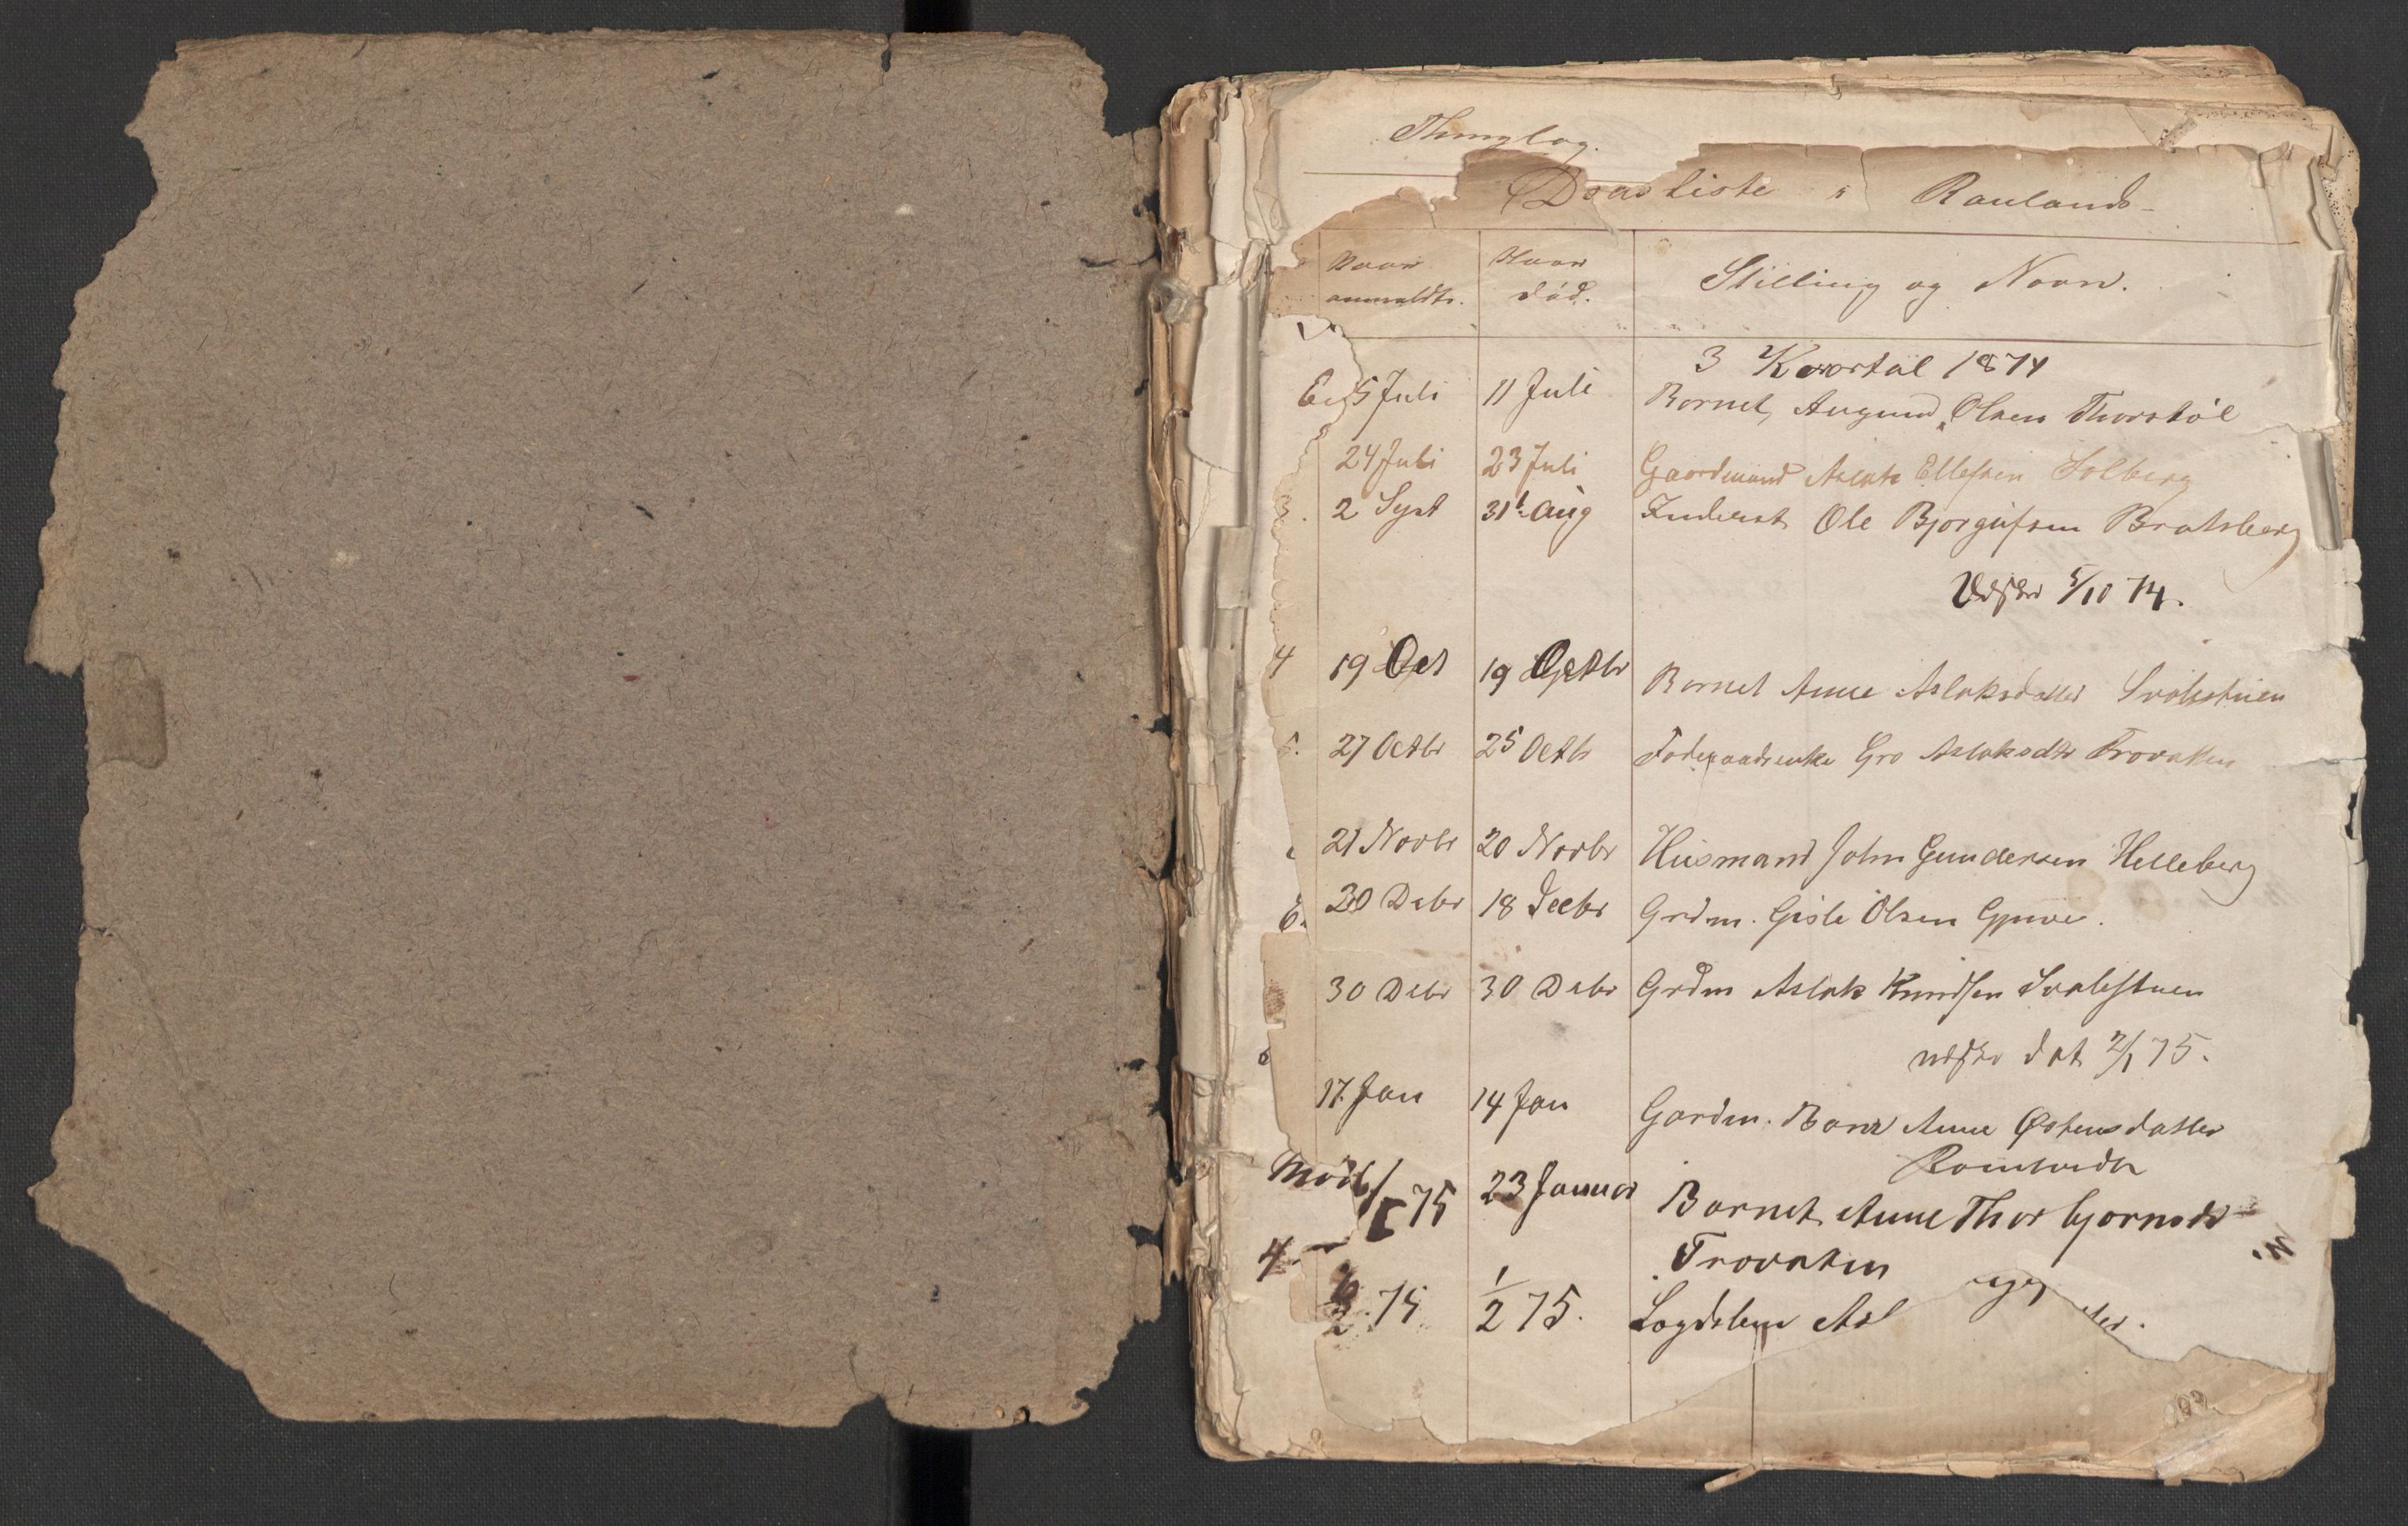 Thinglag.
Døds Liste i Raulands-
Naar anmeldt. Naar død. Stilling og Navn.
3 Kvartal 1874
5 Juli 11 Juli Barnet, Augund Olsen Thorstøl
24 Juli 23 Juli Gaardmand Aslak Ellefsen Solberg
3. 2 Sept 31t Aug Inderst Ole Bjorgufsen Bratsberg
5/10 74.
4 19 Oct 19 Octbr Barnet Anne Aslaksdatter Svalestuen
5. 27 Octbr 25 Octbr Foderaadsenke Gro Aslaksdtr Trovatten
21 Novbr 20 Novbr Husmand John Gundersen Helleberg
30 Debr 18 Decbr Grdm. Gisle Olsen Gjuve.
30 Debr 30 Debr Grdm Aslak Knudsen Svalestuen
dat 2/1 75.
17. Jan 14 Jan Gardm. Barn Anne Østensdatter
75 23 Januar Barnet Anne Thorbjornsdr
4 Trovaten
6/2 75 1/2 75. Lægdslem Asl